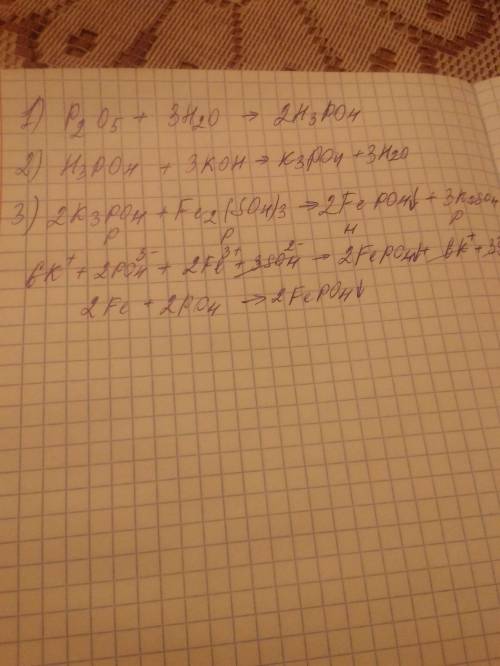 1) P2O5 + 3H2O → 2H3PO4
2) H3PO4 + 3KOH → K3PO4 + 3H2O
3) 2K3PO4 + Fe2(SO4)3 → 2FePO4↓ + 3K2SO4
р р н р
6K⁺ + 2PO4³⁻ + 2Fe³⁺ + 3SO4²⁻ → 2FePO4↓ + 6K⁺ + 3S
2Fe + 2PO4 → 2FePO4↓